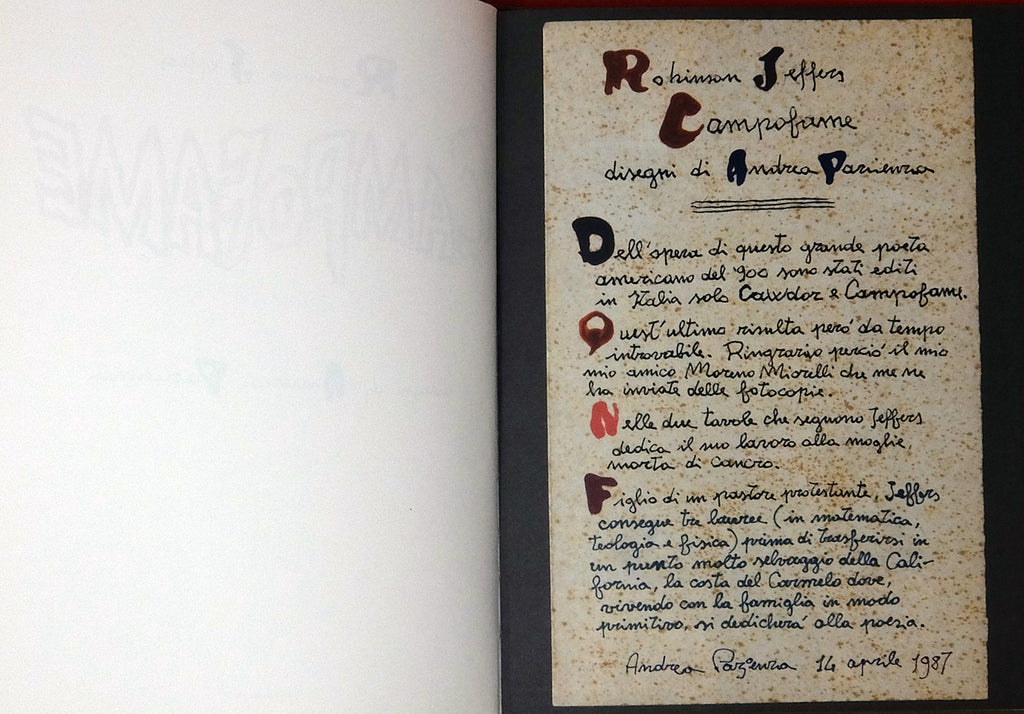 Robinson Jeffers
Campofame
disegni di Andrea Pazienza
Dell'opera di questo grande poeta
americano del 900 sono stati editi
in Italia solo Cawdor e Campofame.
Quest'ultimo risulta però da tempo
introvabile. Ringrazio perciò il mio
mio amico Moreno Miorelli che me ne
ha inviate delle fotocopie.
Nelle due tavole che seguono Jeffers
dedica il suo lavoro alla moglie,
morta di cancro.
Figlio di un pastore protestante, Jeffers
consegue tre lauree (in matematica,
teologia e fisica) prima di trasferirsi in
un punto molto selvaggio della Cali-
fornia, la costa del Carmelo dove,
vivendo con la famiglia in modo
primitivo, si dedicherà alla poesia.
Andrea Pazienza 14 aprile 1987